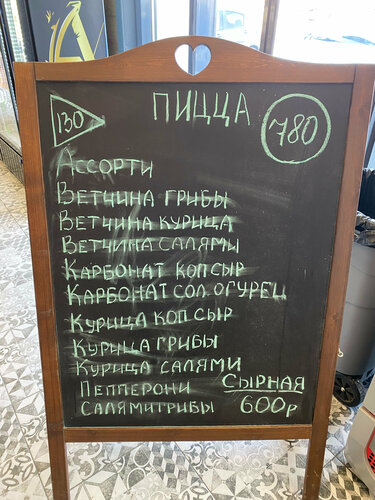 130 ПИЦЦА 780
АССОРТИ
ВЕТЧИНА ГРИБЫ
ВЕТЧИНА КУРИЦА
ВЕТЧИНА САЛЯМИ
КАРБОНАТ КОП СЫР
КАРБОНАТ СОЛ. ОГУРЕЦ
КУРИЦА КОП СЫР
КУРИЦА ГРИБЫ
КУРИЦА САЛЯМИ
ПЕППЕРОНИ СЫРНАЯ
САЛЯМИ ГРИБЫ 600р